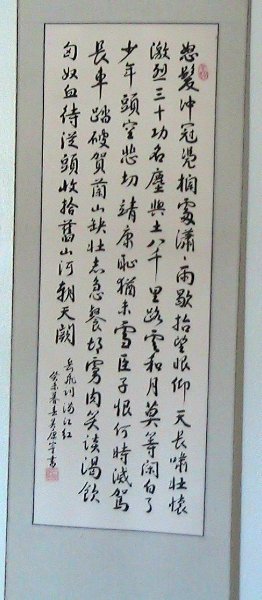 怒髮冲冠凭欄處瀟瀟雨歇抬望眼仰天長嘯壯懷
激烈三十功名塵與土八千里路雲和月莫等闲白了
少年頭空悲切靖康恥猶未雪臣子恨何時滅駕
長車踏破賀蘭山缺壯志飢餐胡虜肉笑談渴飲
匈奴血待從頭收拾舊山河朝天闕
岳飛词满江红
癸未暮春吴